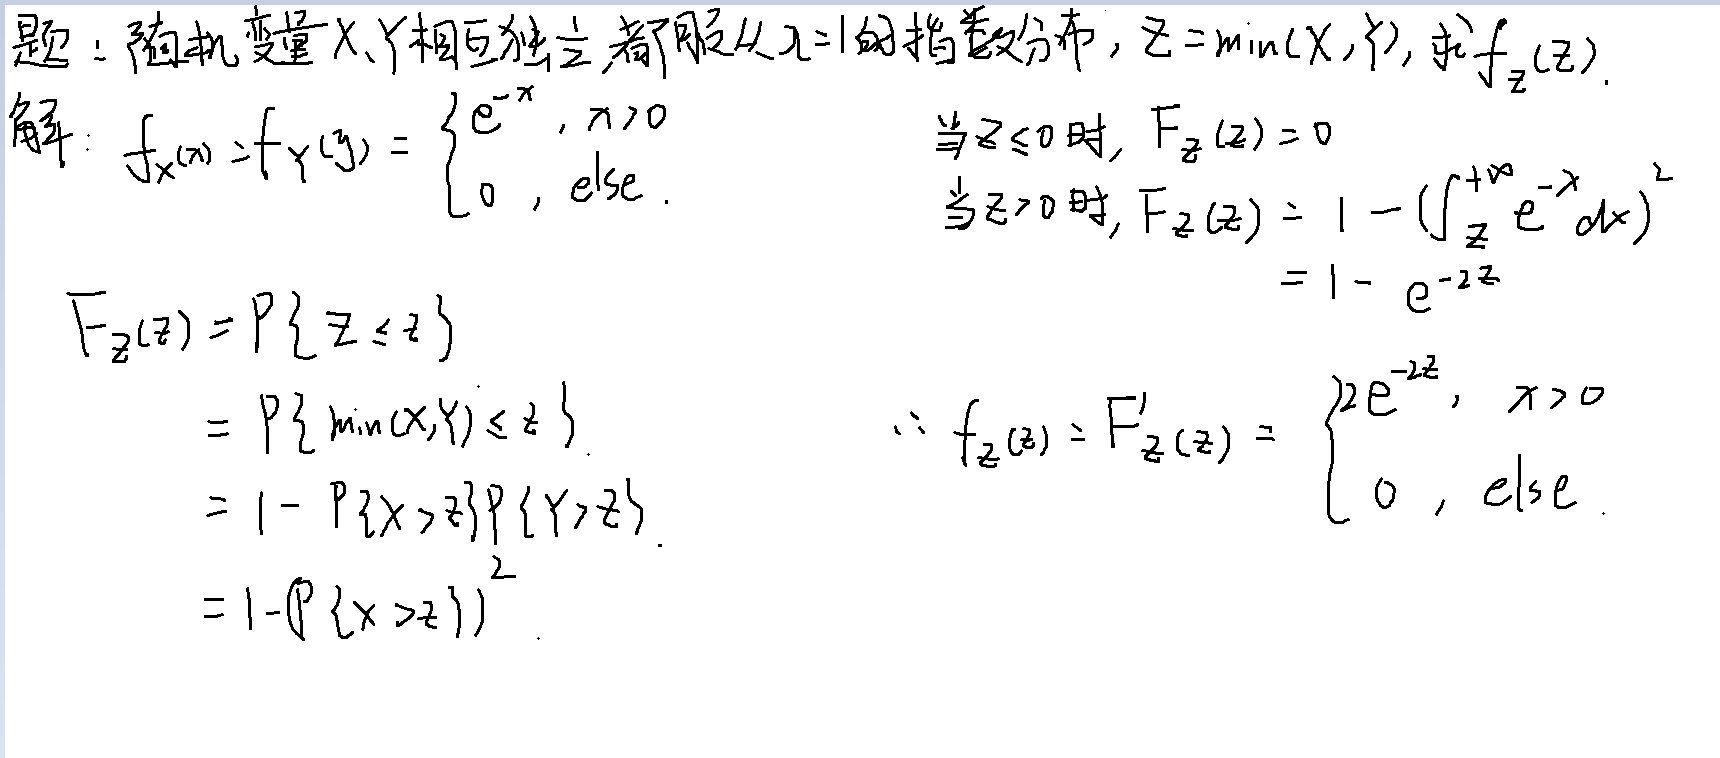 题：随机变量X、Y相互独立,都服从λ=1的指数分布，Z=min(X,Y), 求f_Z(z).
解: f_X(x) = f_Y(y) = { e^{-x}, x>0
0, else.
F_Z(z) = P{Z≤z}
= P{min(X,Y)≤z}.
= 1 - P{X>z}P{Y>z}.
= 1-(P{X>z})^2.
当z≤0时, F_Z(z) = 0
当z>0时, F_Z(z) = 1-(∫_z^{+∞} e^{-x}dx)^2
= 1 - e^{-2z}
∴ f_Z(z) = F'_Z(z) = { 2e^{-2z}, x>0
0, else.